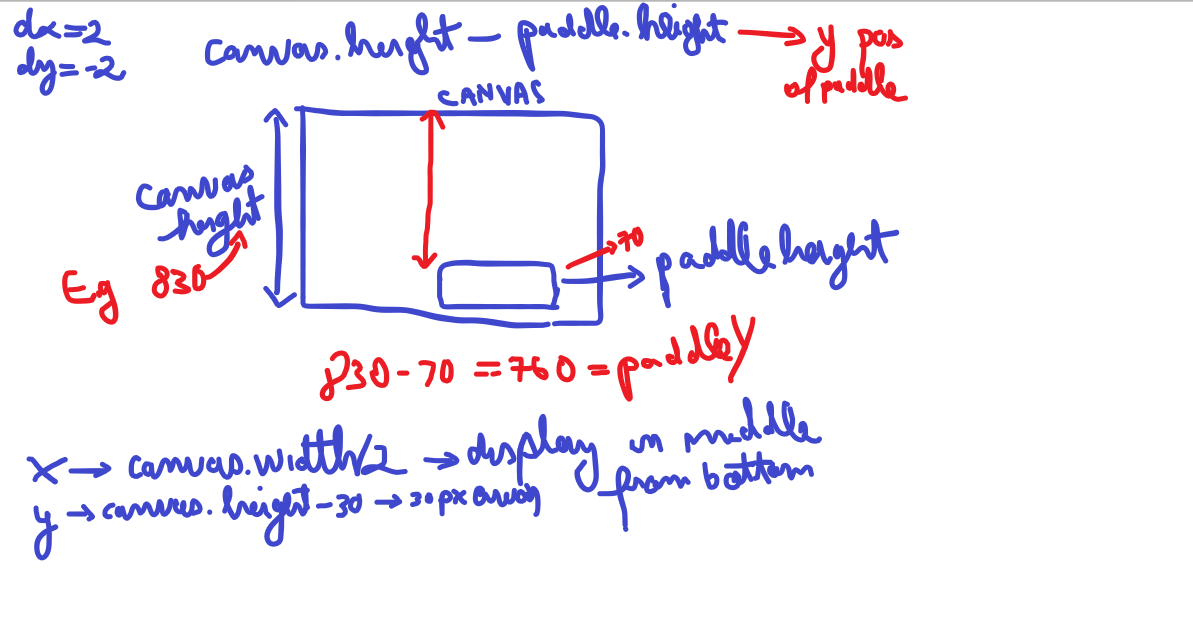 dx = 2
dy = -2
canvas.height - paddle.height → y pos
of paddle
CANVAS
canvas
height
70
paddle height
Eg 830
830 - 70 = 760 = paddleY
x → canvas.width/2 → display in middle
y → canvas.height - 30 → 30 px away from bottom